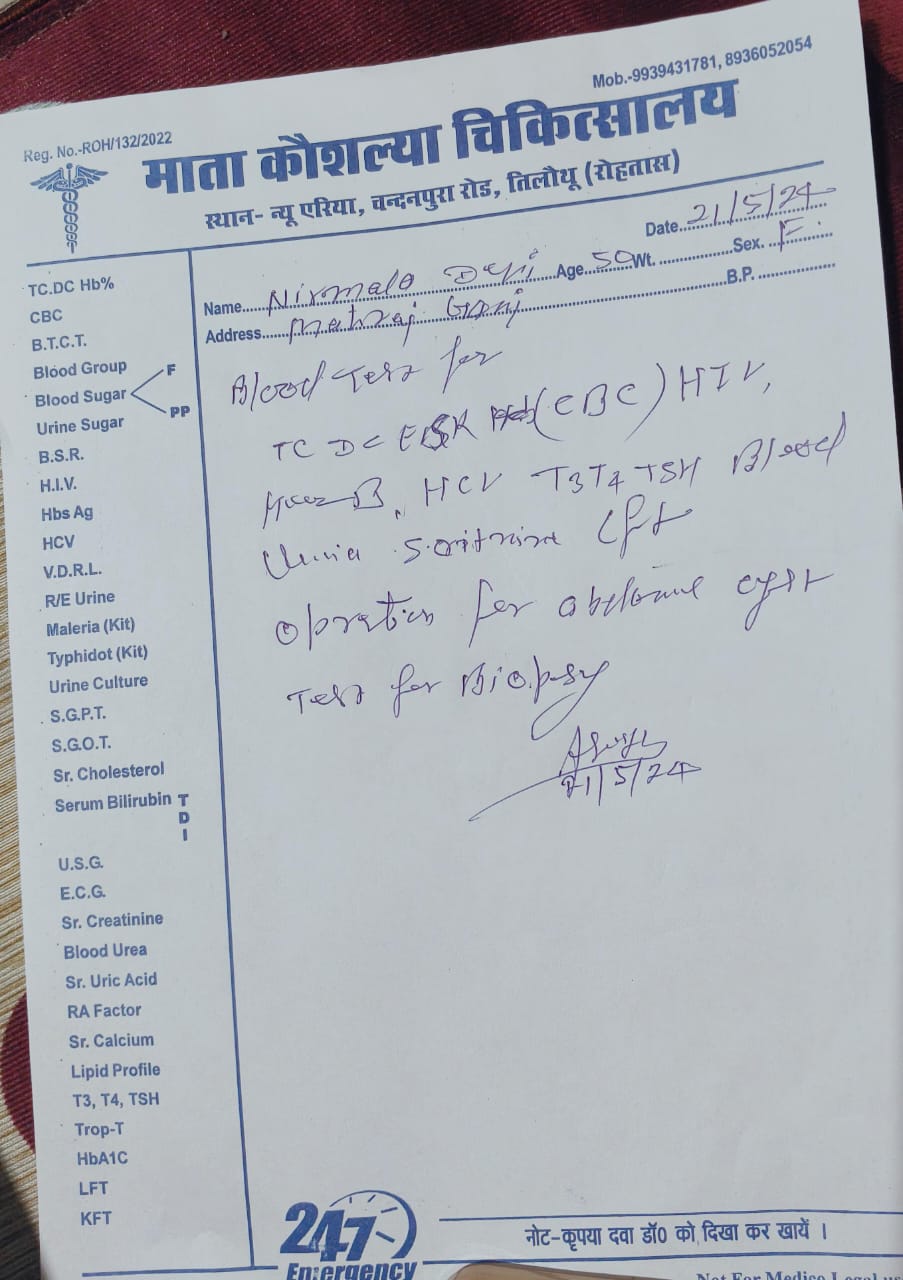 Mob.-9939431781, 8936052054
Reg. No.-ROH/132/2022
माता कौशल्या चिकित्सालय
स्थान- न्यू एरिया, चन्दनपुरा रोड, तिलौथू (रोहतास)
Date 21/5/24
Name Nirmala Devi Age 50 Wt. Sex. F.
Address Mehraj Ganj B.P.
TC.DC Hb%
CBC
B.T.C.T.
Blood Group
Blood Sugar F PP
Urine Sugar
B.S.R.
H.I.V.
Hbs Ag
HCV
V.D.R.L.
R/E Urine
Maleria (Kit)
Typhidot (Kit)
Urine Culture
S.G.P.T.
S.G.O.T.
Sr. Cholesterol
Serum Bilirubin T D I
U.S.G.
E.C.G.
Sr. Creatinine
Blood Urea
Sr. Uric Acid
RA Factor
Sr. Calcium
Lipid Profile
T3, T4, TSH
Trop-T
HbA1C
LFT
KFT
Blood Test for
TC DC ESR (CBC) HIV,
HCV T3 T4 TSH Blood
for cyst
Test for Biopsy
21/5/24
247
Emergency
नोट-कृपया दवा डॉ0 को दिखा कर खायें ।
Not For Medico Legal